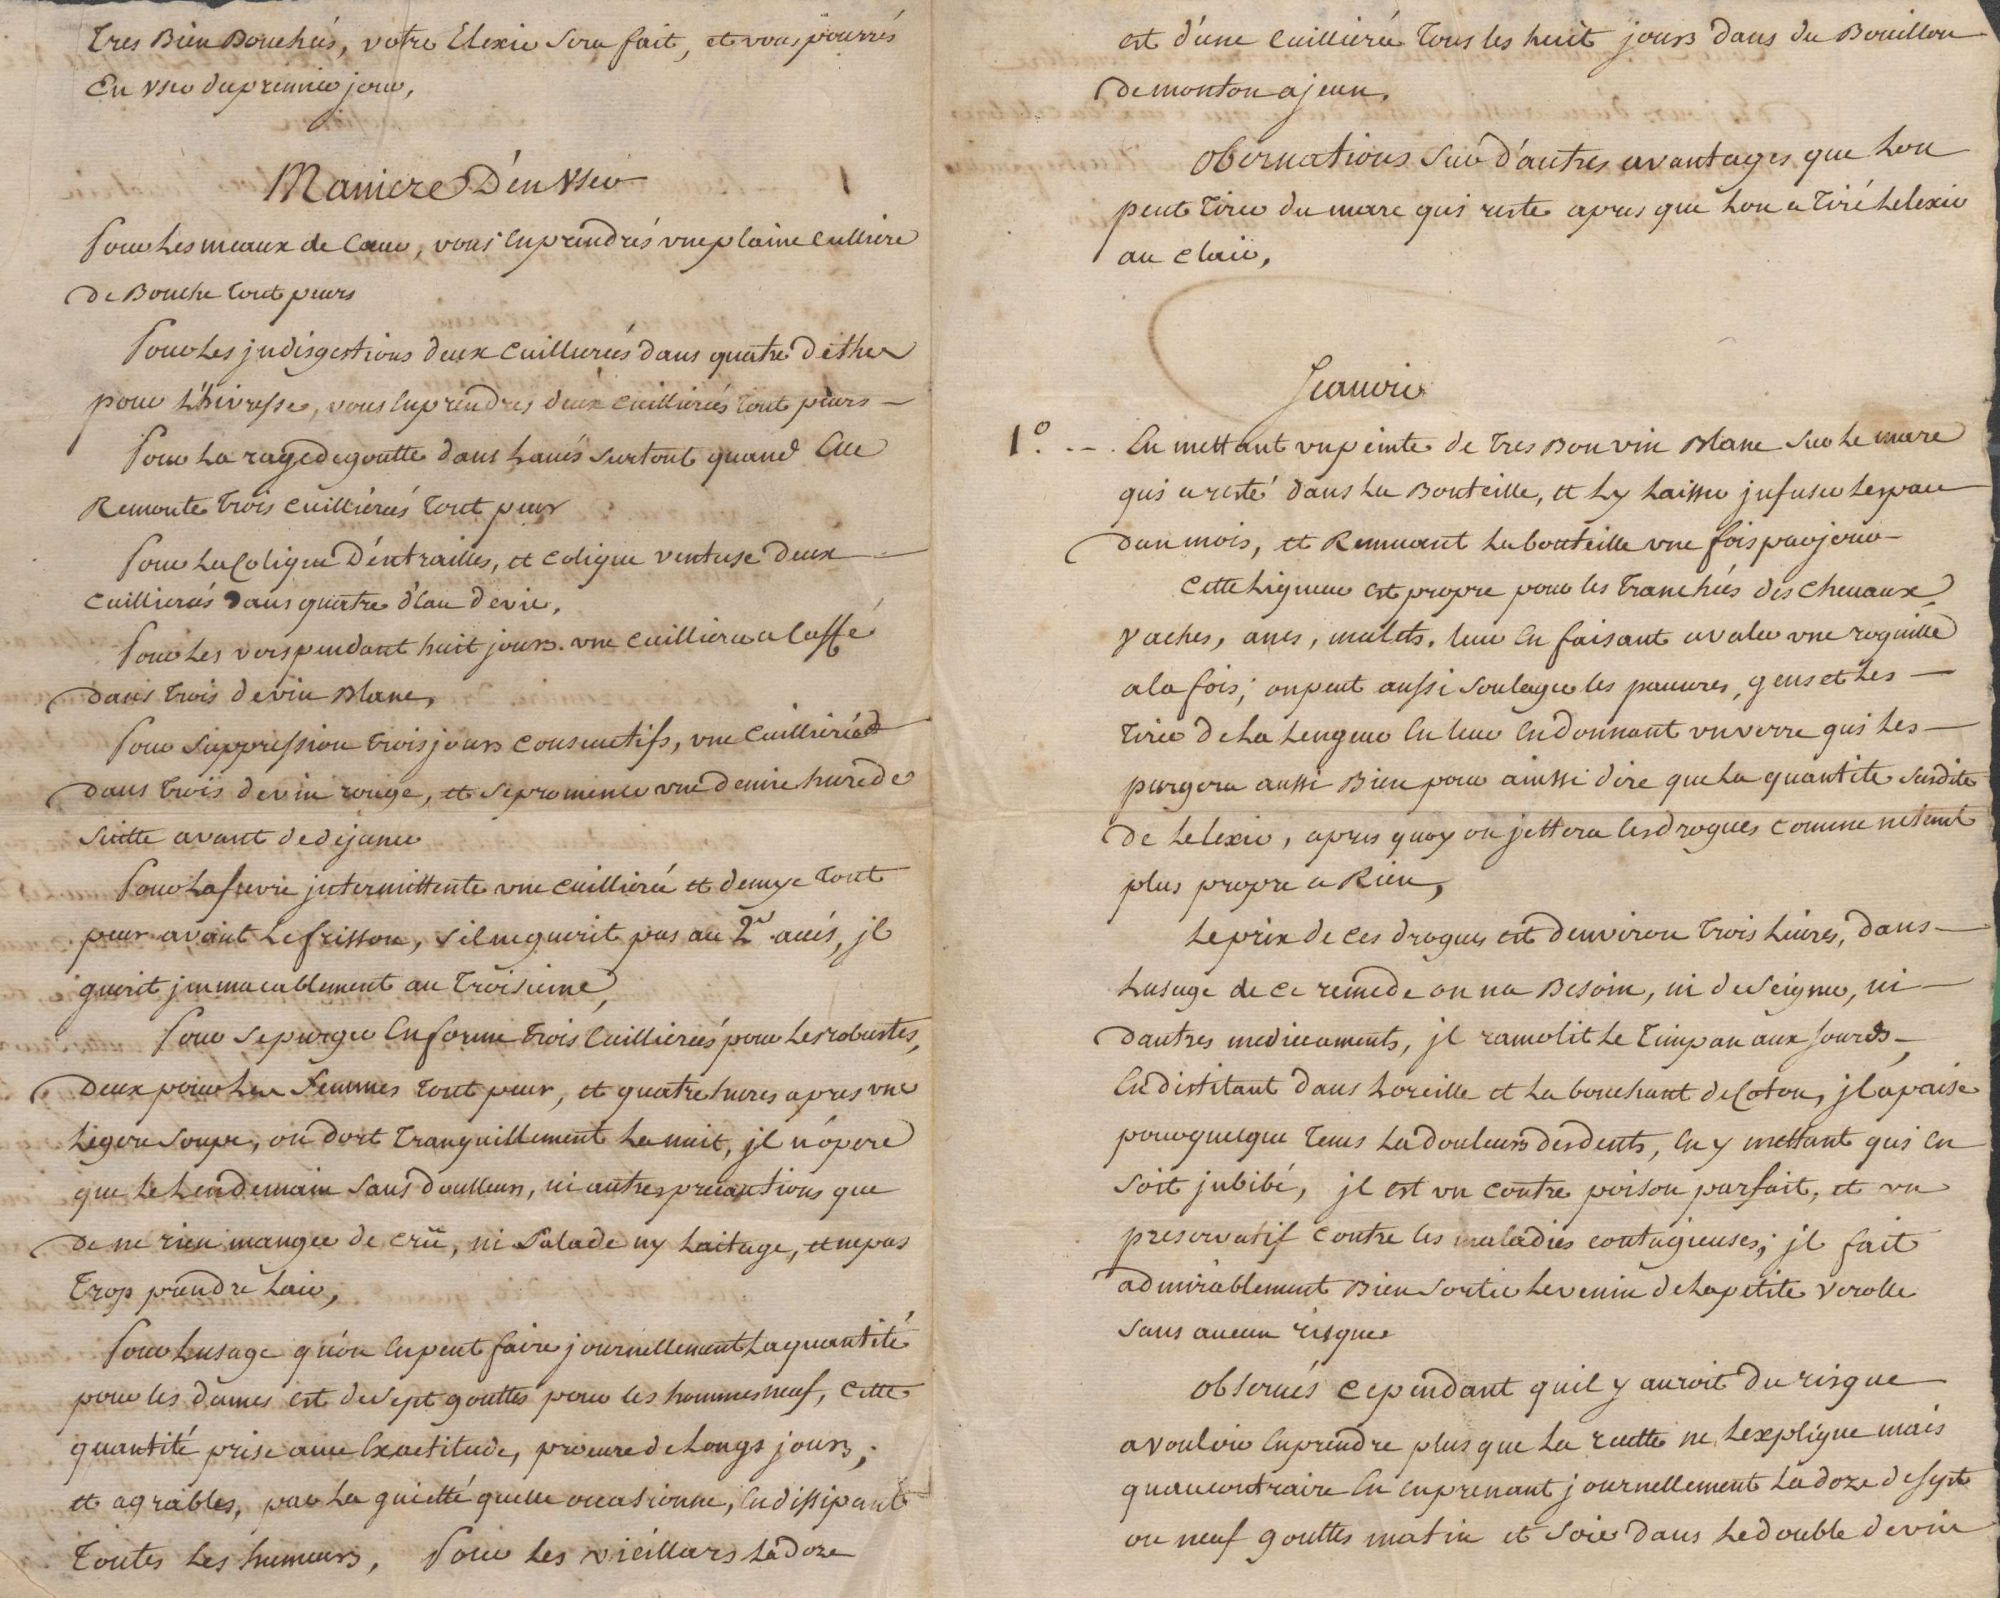 Tres Bien Bouchés, votre Elexir sera fait, et vous pourrés
En user du premier jour,
Maniere D'en User
Pour Les meaux de Cœur, vous Enprendrés une plaine Cuilliere
de Bouche tout peurs
Pour Les jndisgestions deux Cuillierées dans quatre d'éther
pour L'hivresse, vous Enprendres deux Cuillierées tout peurs —
Pour La rage de goutte dans L'accés surtout quand Elle
Remonte Trois Cuillierées tout peur
Pour La Colique D'entrailles, et Colique venteuse deux
Cuillierés dans quatre d'Eau de vie,
Pour Les vers pendant huit jours. une Cuilliere a Caffé
dans trois de vin Blanc,
Pour Suppression trois jours consecutifs, une Cuillierée
dans trois de vin rouge, et se promener une demie hure de
suitte avant de dejeuner
Pour La fievre jntermittente une Cuillierée et demye tout
peur avant Le frisson, s'il ne guerit pas au 2e accés, jl
guerit jmmacablement au Troisieme,
Pour se purger En forme Trois Cuillierées pour Les robustes,
Deux pour Les Femmes tout peur, et quatre hures apres une
Legere Soupe, on dort Tranquillement La nuit, jl n'opere
que Le Lendemain sans doulleurs, ni autres precautions que
de ne rien manger de crü, ni Salade ny Laitage, et ne pas
trop prendre L'air,
Pour L'usage qu'on En peut faire journellement La quantité
pour les dames est de Sept gouttes pour les hommes neuf, Cette
quantité prise avec Exactitude, procure de Longs jours,
et agrables, par La guietté quelle occasionne, En dissipant
Toutes Les humeurs, Pour Les vieillars La doze
est d'une Cuillierée Tous les huit jours dans du Bouillon
de mouton a jeun,
Obervations sur d'autres avantages que Lon
peut tirer du marc qui reste apres que Lon a Tiré Lelexir
au Clair,
Scavoir
1º. -- En mettant un peinte de tres Bon vin Blanc sur Le marc
qui a resté dans La Bouteille, et Ly Laisser jnfuser Lespace
dun mois, et Remuant La bouteille une fois par jour —
Cette Liqueur est propre pour les Tranchées des Chevaux,
vaches, anes, mulets, leur En faisant avaler une roquille
a la fois; on peut aussi Soulager les pauvres, gens et Les —
tirer de La Lengueur En leur En donnant un verre qui Les —
purgera aussi Bien pour ainssi dire que La quantité susdite
de Lelexir, apres quoy on jettera les drogues comme n'etant
plus propre a Rien,
Le prix de ces drogues est denviron trois Livres, dans —
L'usage de ce remede on na Besoin, ni de Seigner, ni —
d'autres medicaments, jl ramolit Le Timpan aux Sourds —
En distitant dans L'oreille et La bouchant de Coton, jl apaise
pour quelque tems La douleurs des dents, En y mettant qui En
soit jubibé, jl est un contre poison parfait, et un
preservatif Contre les maladies contagieuses; jl fait
admirablement Bien Sortir Le venin de La petite verolle
sans aucun risque
Observés Cependant qu'il y auroit du risque
a vouloir En prendre plus que La recette ne Lexplique mais
quau contraire En En prenant journellement La doze de Sept
ou neuf gouttes matin et Soir dans Le double de vin